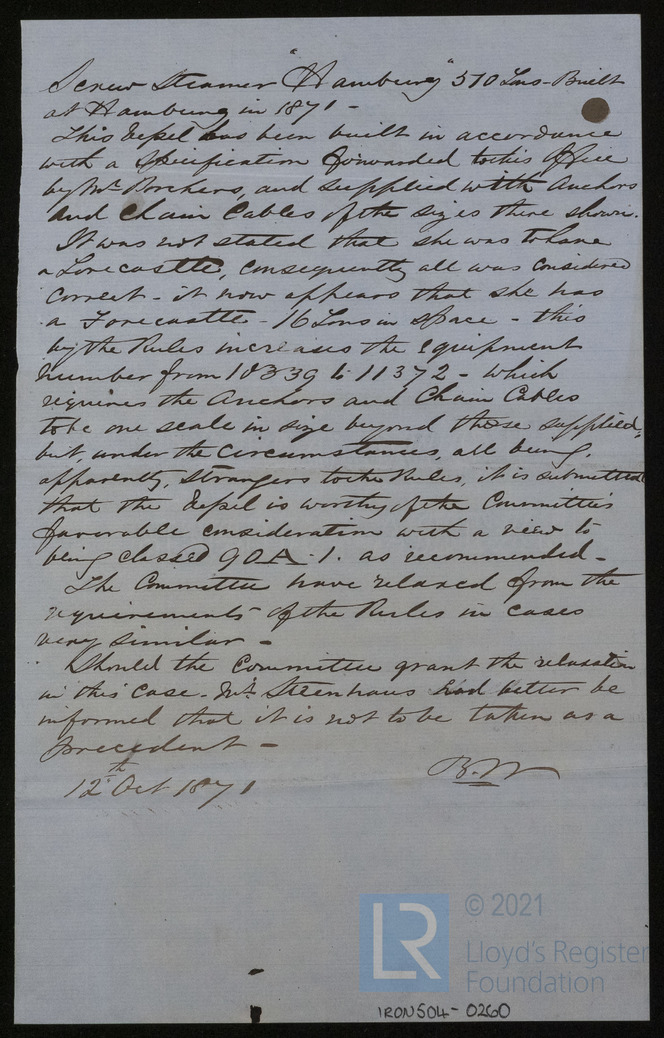 Screw Steamer "Hamburg" 570 Tons - Built
at Hamburg in 1871 -
This Vessel has been built in accordance
with a Specification forwarded to this Office
by Mr. Borchers, and supplied with Anchors
and Chain Cables of the sizes there shown.
It was not stated that she was to have
a Forecastle, consequently all was considered
correct - it now appears that she has
a Forecastle - 16 Tons in space - this
by the Rules increases the equipment
number from 10339 to 11372 - which
requires the Anchors and Chain Cables
to be one scale in size beyond those supplied,
but, under the circumstances, all being,
apparently, strangers to the Rules, it is submitted
that the Vessel is worthy of the Committee's
favorable consideration with a view to
being classed 90A.1. as recommended -
The Committee have relaxed from the
requirements of the Rules in cases
very similar -
Should the Committee grant the relaxation
in this case - Mr. Steenhaus had better be
informed that it is not to be taken as a
precedent -
B.W
12th Oct 1871
LR
© 2021
Lloyd's Register
Foundation
IRON504-0260